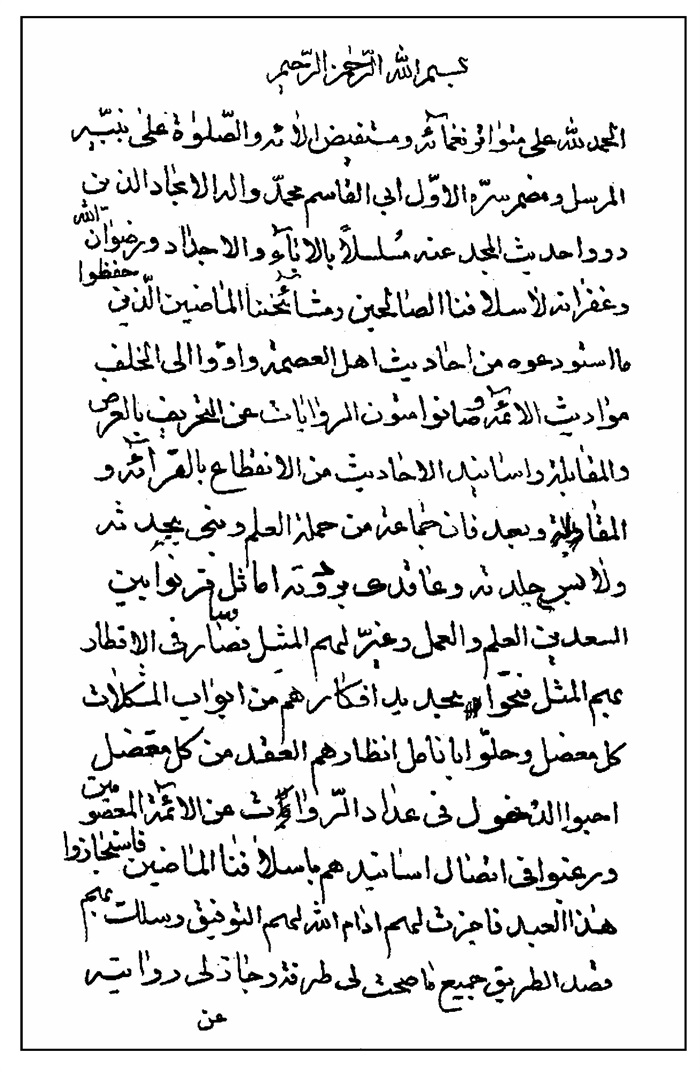 بسم الله الرّحمن الرّحيم
الحمد لله على متواتر نعمآئه ومستفيض الآئه والصّلوة على نبيّه
المرسل ومضمر سرّه الاوّل ابي القاسم محمّد واله الامجاد الذين
رووا حديث المجد عنه مُسلسلاً بالاباۤء والاجداد ورضوان الله
وغفرانه لأسلافنا الصالحين ومشائخنا الماضين الّذين حفظوا
ما استودعوه من احاديث اهل العصمة وادّوا الى الخلف
مواريث الائمّة وصانوا متون الروايات عن التحريف بالعرض
والمقابلة واسانيد الاحاديث من الانقطاع بالقرآئة و
المقاولة وبعد فان جماعة من حملة العلم وبنى بجدته
ولابسى جلدته وعاقدى بردته اماثل قرنوا بين
السعدين العلم والعمل وعزّ لهم المثل فصاروا في الاقطار
بهم المثل فتحوا بجديد افكارهم من ابواب المشكلات
كل معضل وحلّوا بانامل انظارهم العقد من كل معضل
احبوا الدخول في عداد الرّواة عن الائمّة المعصومين
ورغبوا في اتصال اسانيدهم باسلافنا الماضين فاستجازوا
هذا العبد فاجزت لهم ادام الله لهم التوفيق وسلك بهم
قصد الطريق جميع ما صحت لى طرقه وجاز لى روايته
عن